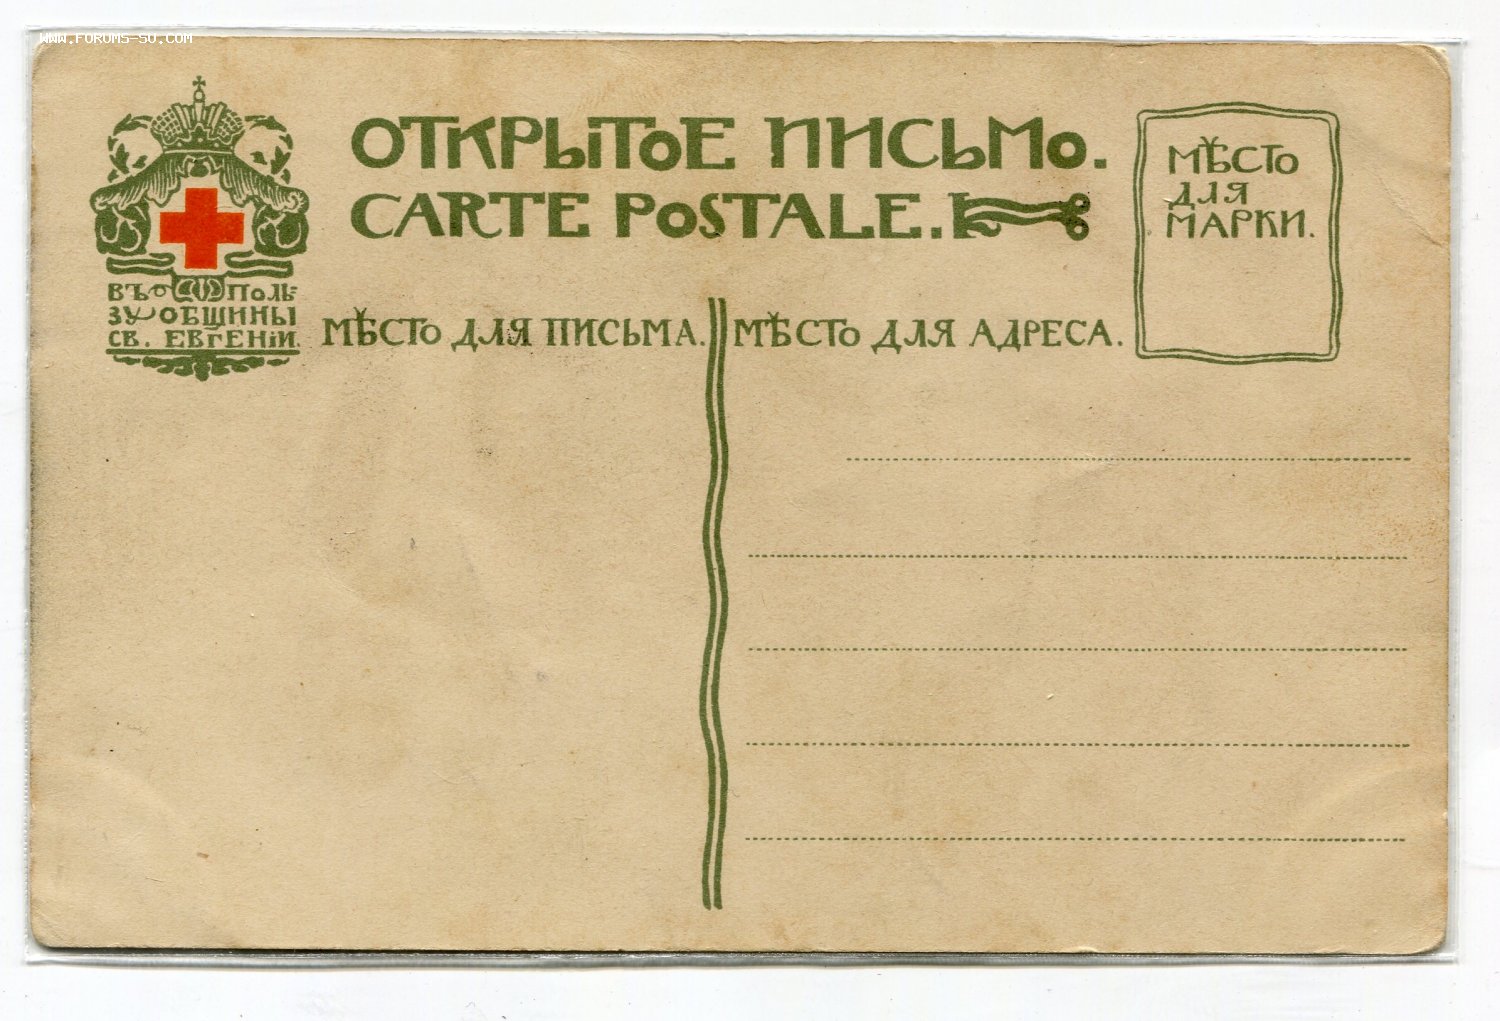 WWW.FORUMS-SU.COM
ОТКРЫТОЕ ПИСЬМО.
CARTE POSTALE.
МѢСТО
ДЛЯ
МАРКИ.
ВЪ ПОЛЬ-
ЗУ ОБЩИНЫ
СВ. ЕВГЕНIИ.
МѢСТО ДЛЯ ПИСЬМА.
МѢСТО ДЛЯ АДРЕСА.